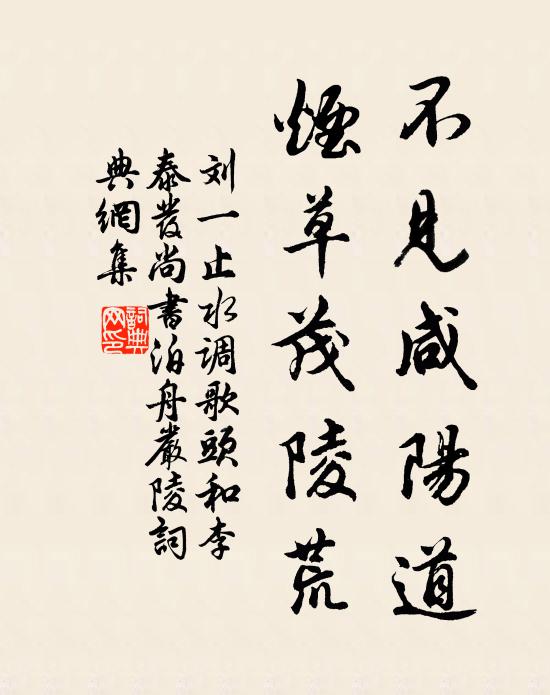 不見咸陽道
煙草茂陵荒
刘一止水调歌頭和李
泰發尚書泊舟嚴陵詞
典網集
詞典网印